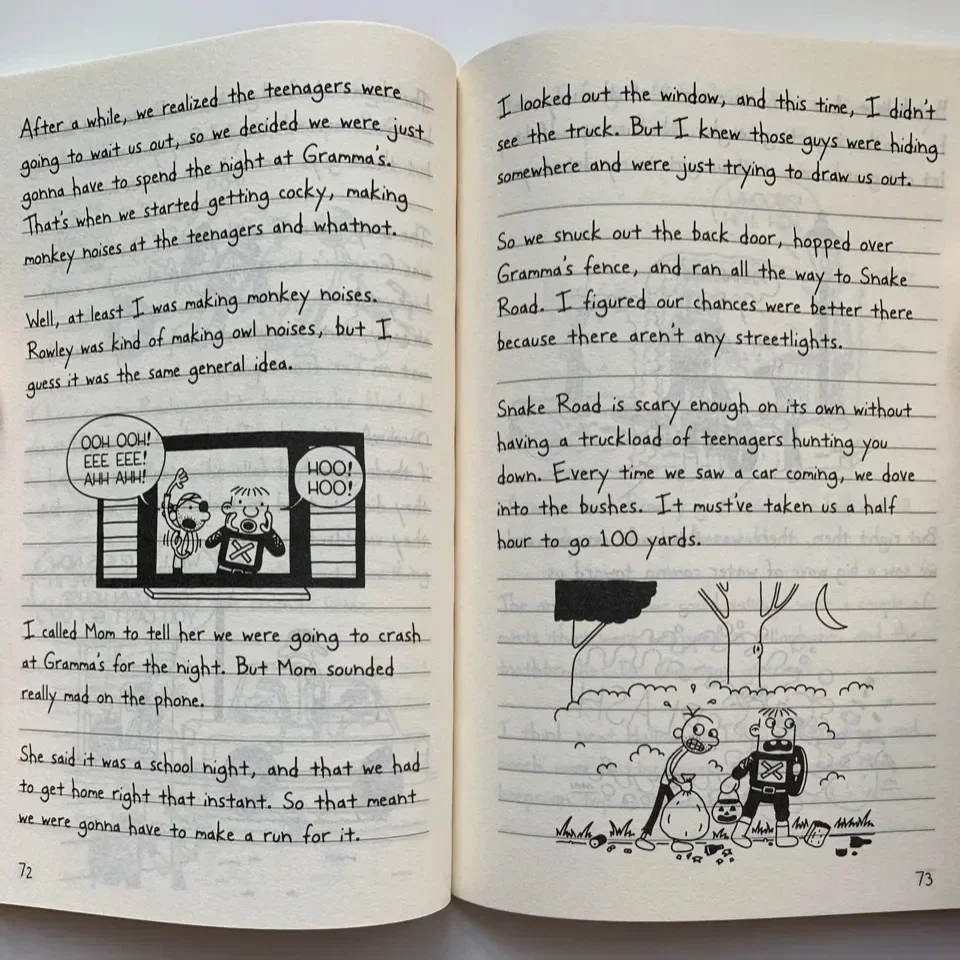 After a while, we realized the teenagers were
going to wait us out, so we decided we were just
gonna have to spend the night at Gramma's.
That's when we started getting cocky, making
monkey noises at the teenagers and whatnot.
Well, at least I was making monkey noises.
Rowley was kind of making owl noises, but I
guess it was the same general idea.
OOH OOH!
EEE EEE!
AHH AHH!
HOO!
HOO!
I called Mom to tell her we were going to crash
at Gramma's for the night. But Mom sounded
really mad on the phone.
She said it was a school night, and that we had
to get home right that instant. So that meant
we were gonna have to make a run for it.
72
I looked out the window, and this time, I didn't
see the truck. But I knew those guys were hiding
somewhere and were just trying to draw us out.
So we snuck out the back door, hopped over
Gramma's fence, and ran all the way to Snake
Road. I figured our chances were better there
because there aren't any streetlights.
Snake Road is scary enough on its own without
having a truckload of teenagers hunting you
down. Every time we saw a car coming, we dove
into the bushes. It must've taken us a half
hour to go 100 yards.
73